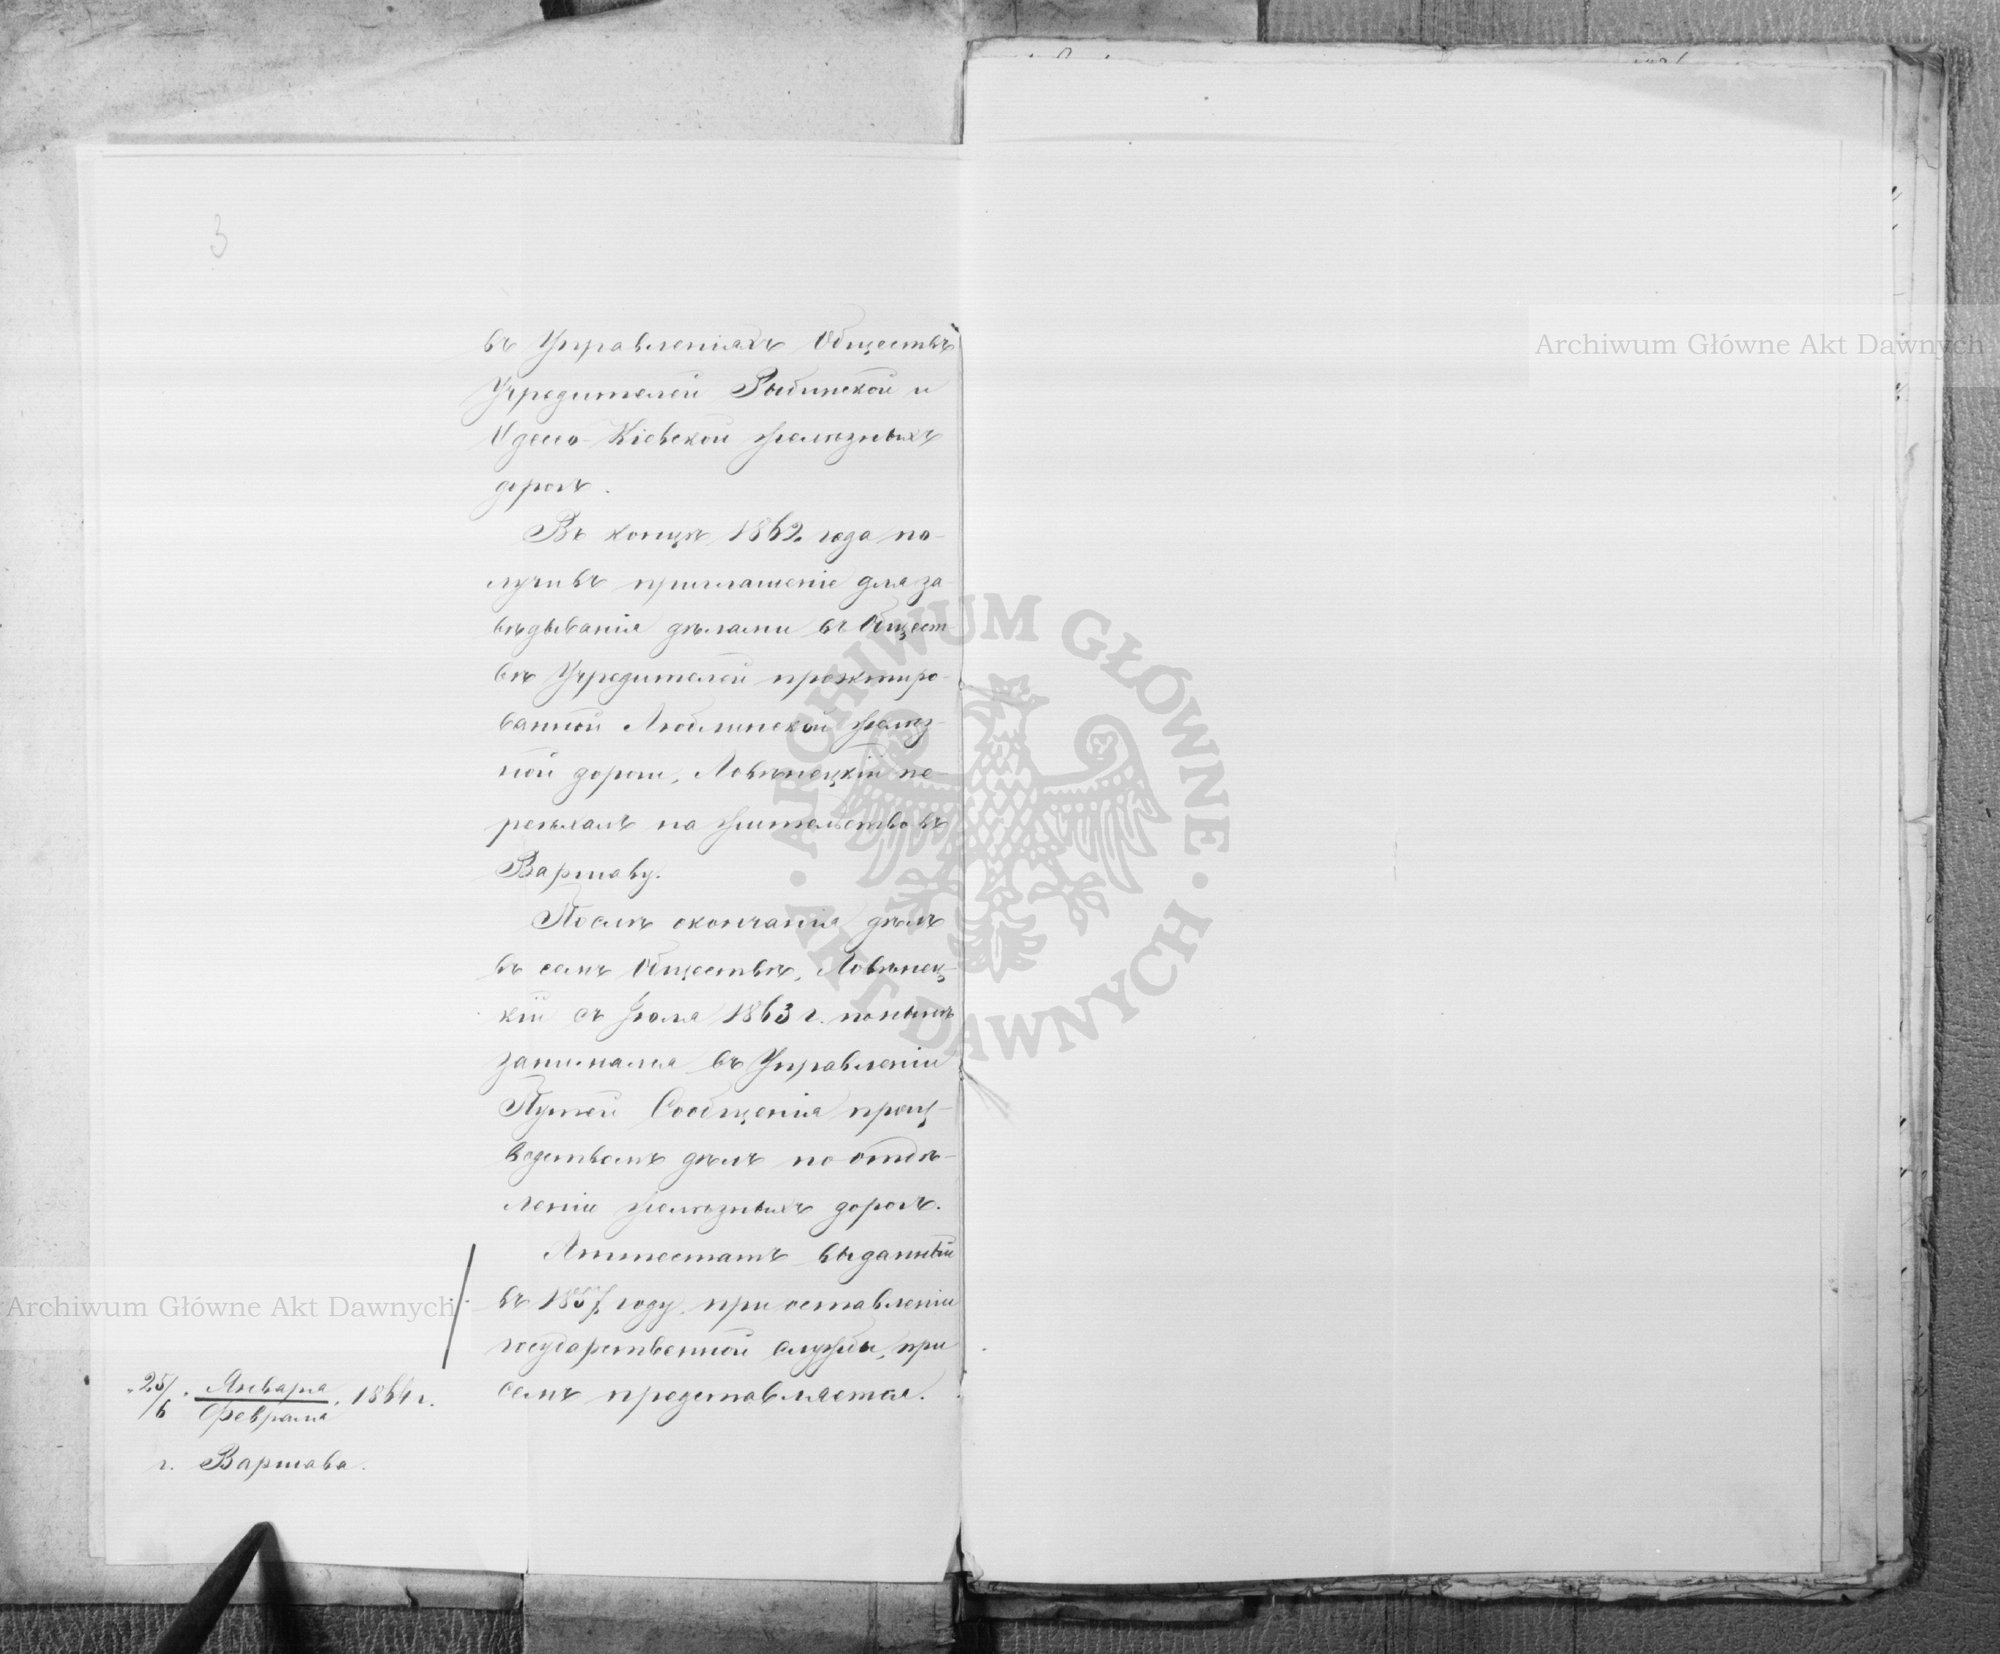 3
въ Управленіяхъ Обществъ
Учредителей Рыбинской и
Одесо-Кіевской желѣзныхъ
дорогъ.
Въ концѣ 1862 года по-
лучивъ приглашеніе для за
вѣдыванія дѣлами въ Общест-
вѣ Учредителей проэктиро-
ванной Люблинской желѣз-
ной дороги, Ловѣнецкій пе-
реѣхалъ на жительство въ
Варшаву.
Послѣ окончанія дѣлъ
въ семъ Обществѣ, Ловѣнец-
кій съ Іюля 1863 г. понынѣ
занимался въ Управленіи
Путей Сообщенія произ-
водствомъ дѣлъ по отдѣ-
ленію желѣзныхъ дорогъ.
Аттестатъ выданный
въ 1857 году, при оставленіи
государственной службы, при
семъ представляется.
25/6 Января/Февраля 1864 г.
г. Варшава.
Archiwum Główne Akt Dawnych
Archiwum Główne Akt Dawnych
ARCHIWUM GŁÓWNE · AKT DAWNYCH ·